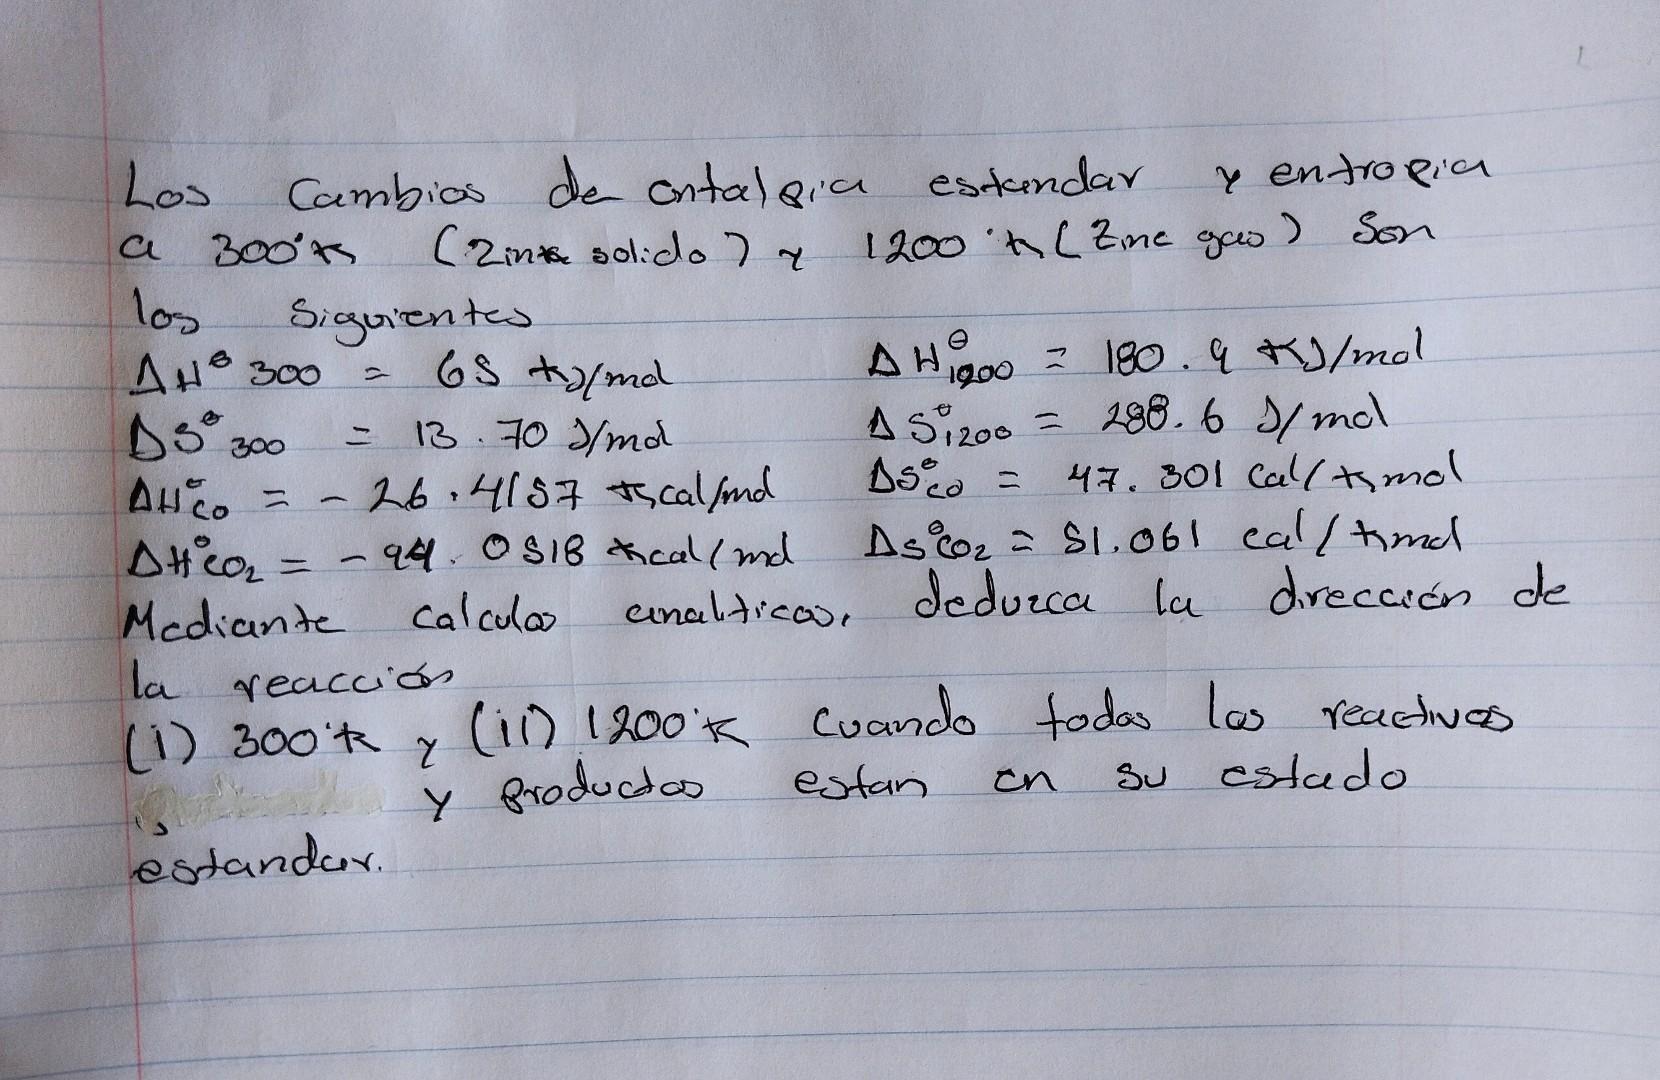 Los Cambios de entalpia estandar y entropia
a 300°K (Zinc solido) y 1200°K (Zinc gas) Son
los Siguientes
ΔH° 300 = 65 KJ/mol ΔH°1200 = 180.9 KJ/mol
ΔS°300 = 13.70 J/mol ΔS°1200 = 288.6 J/mol
ΔH°CO = -26.4157 Kcal/mol ΔS°CO = 47.301 Cal/Kmol
ΔH°CO2 = -94.0518 Kcal/mol ΔS°CO2 = 51.061 cal/Kmol
Mediante calculos analiticos, deduzca la dirección de
la reacción
(i) 300°K y (ii) 1200°K Cuando todos los reactivos
y productos estan en su estado
estandar.